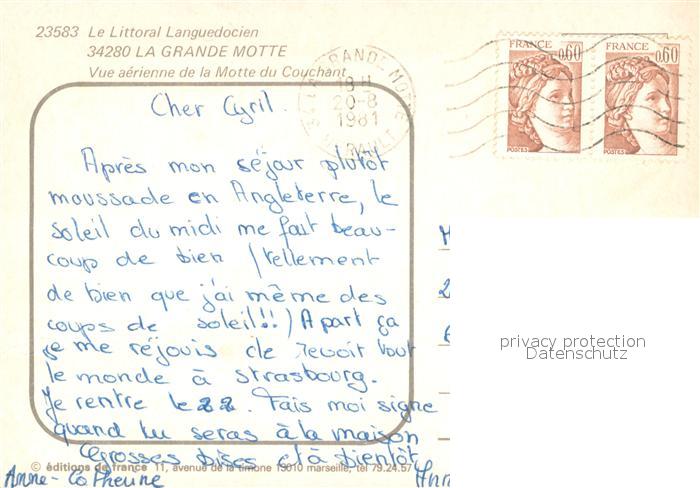 23583 Le Littoral Languedocien
34280 LA GRANDE MOTTE
Vue aérienne de la Motte du Couchant
18 H
20-8
1981
FRANCE 0,60
FRANCE 0,60
POSTES
POSTES
Cher Cyril.
Après mon séjour plutôt
moussade en Angleterre, le
soleil du midi me fait beau-
coup de bien (tellement
de bien que j'ai même des
coups de soleil!!) A part ça
je me réjouis de revoir tout
le monde à Strasbourg.
Je rentre le 22. Fais moi signe
quand tu seras à la maison
Grosses bises et à bientôt
Anne-Catherine
privacy protection
Datenschutz
© éditions de france 11, avenue de la timone 13010 marseille, tél 79.24.57